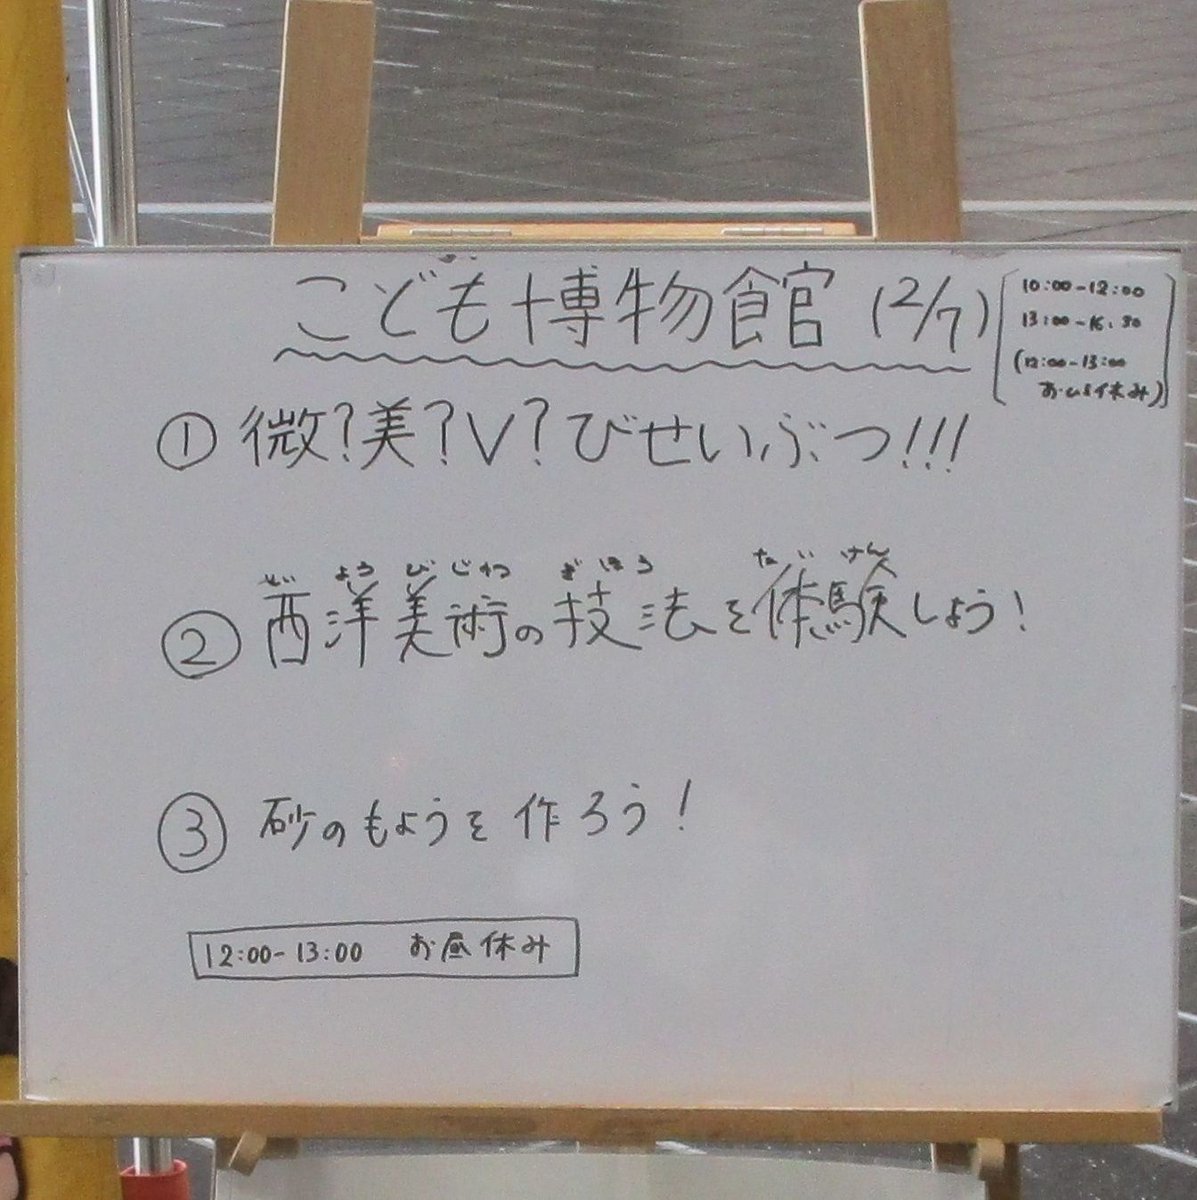 こども博物館 (2/7)
10:00-12:00
13:00-16:30
(12:00-13:00
お昼休み)
① 微?美?V?びせいぶつ!!!
せい よう び じゅつ ぎ ほう たい けん
② 西洋美術の技法を体験しよう!
③ 砂のもようを作ろう!
12:00-13:00 お昼休み